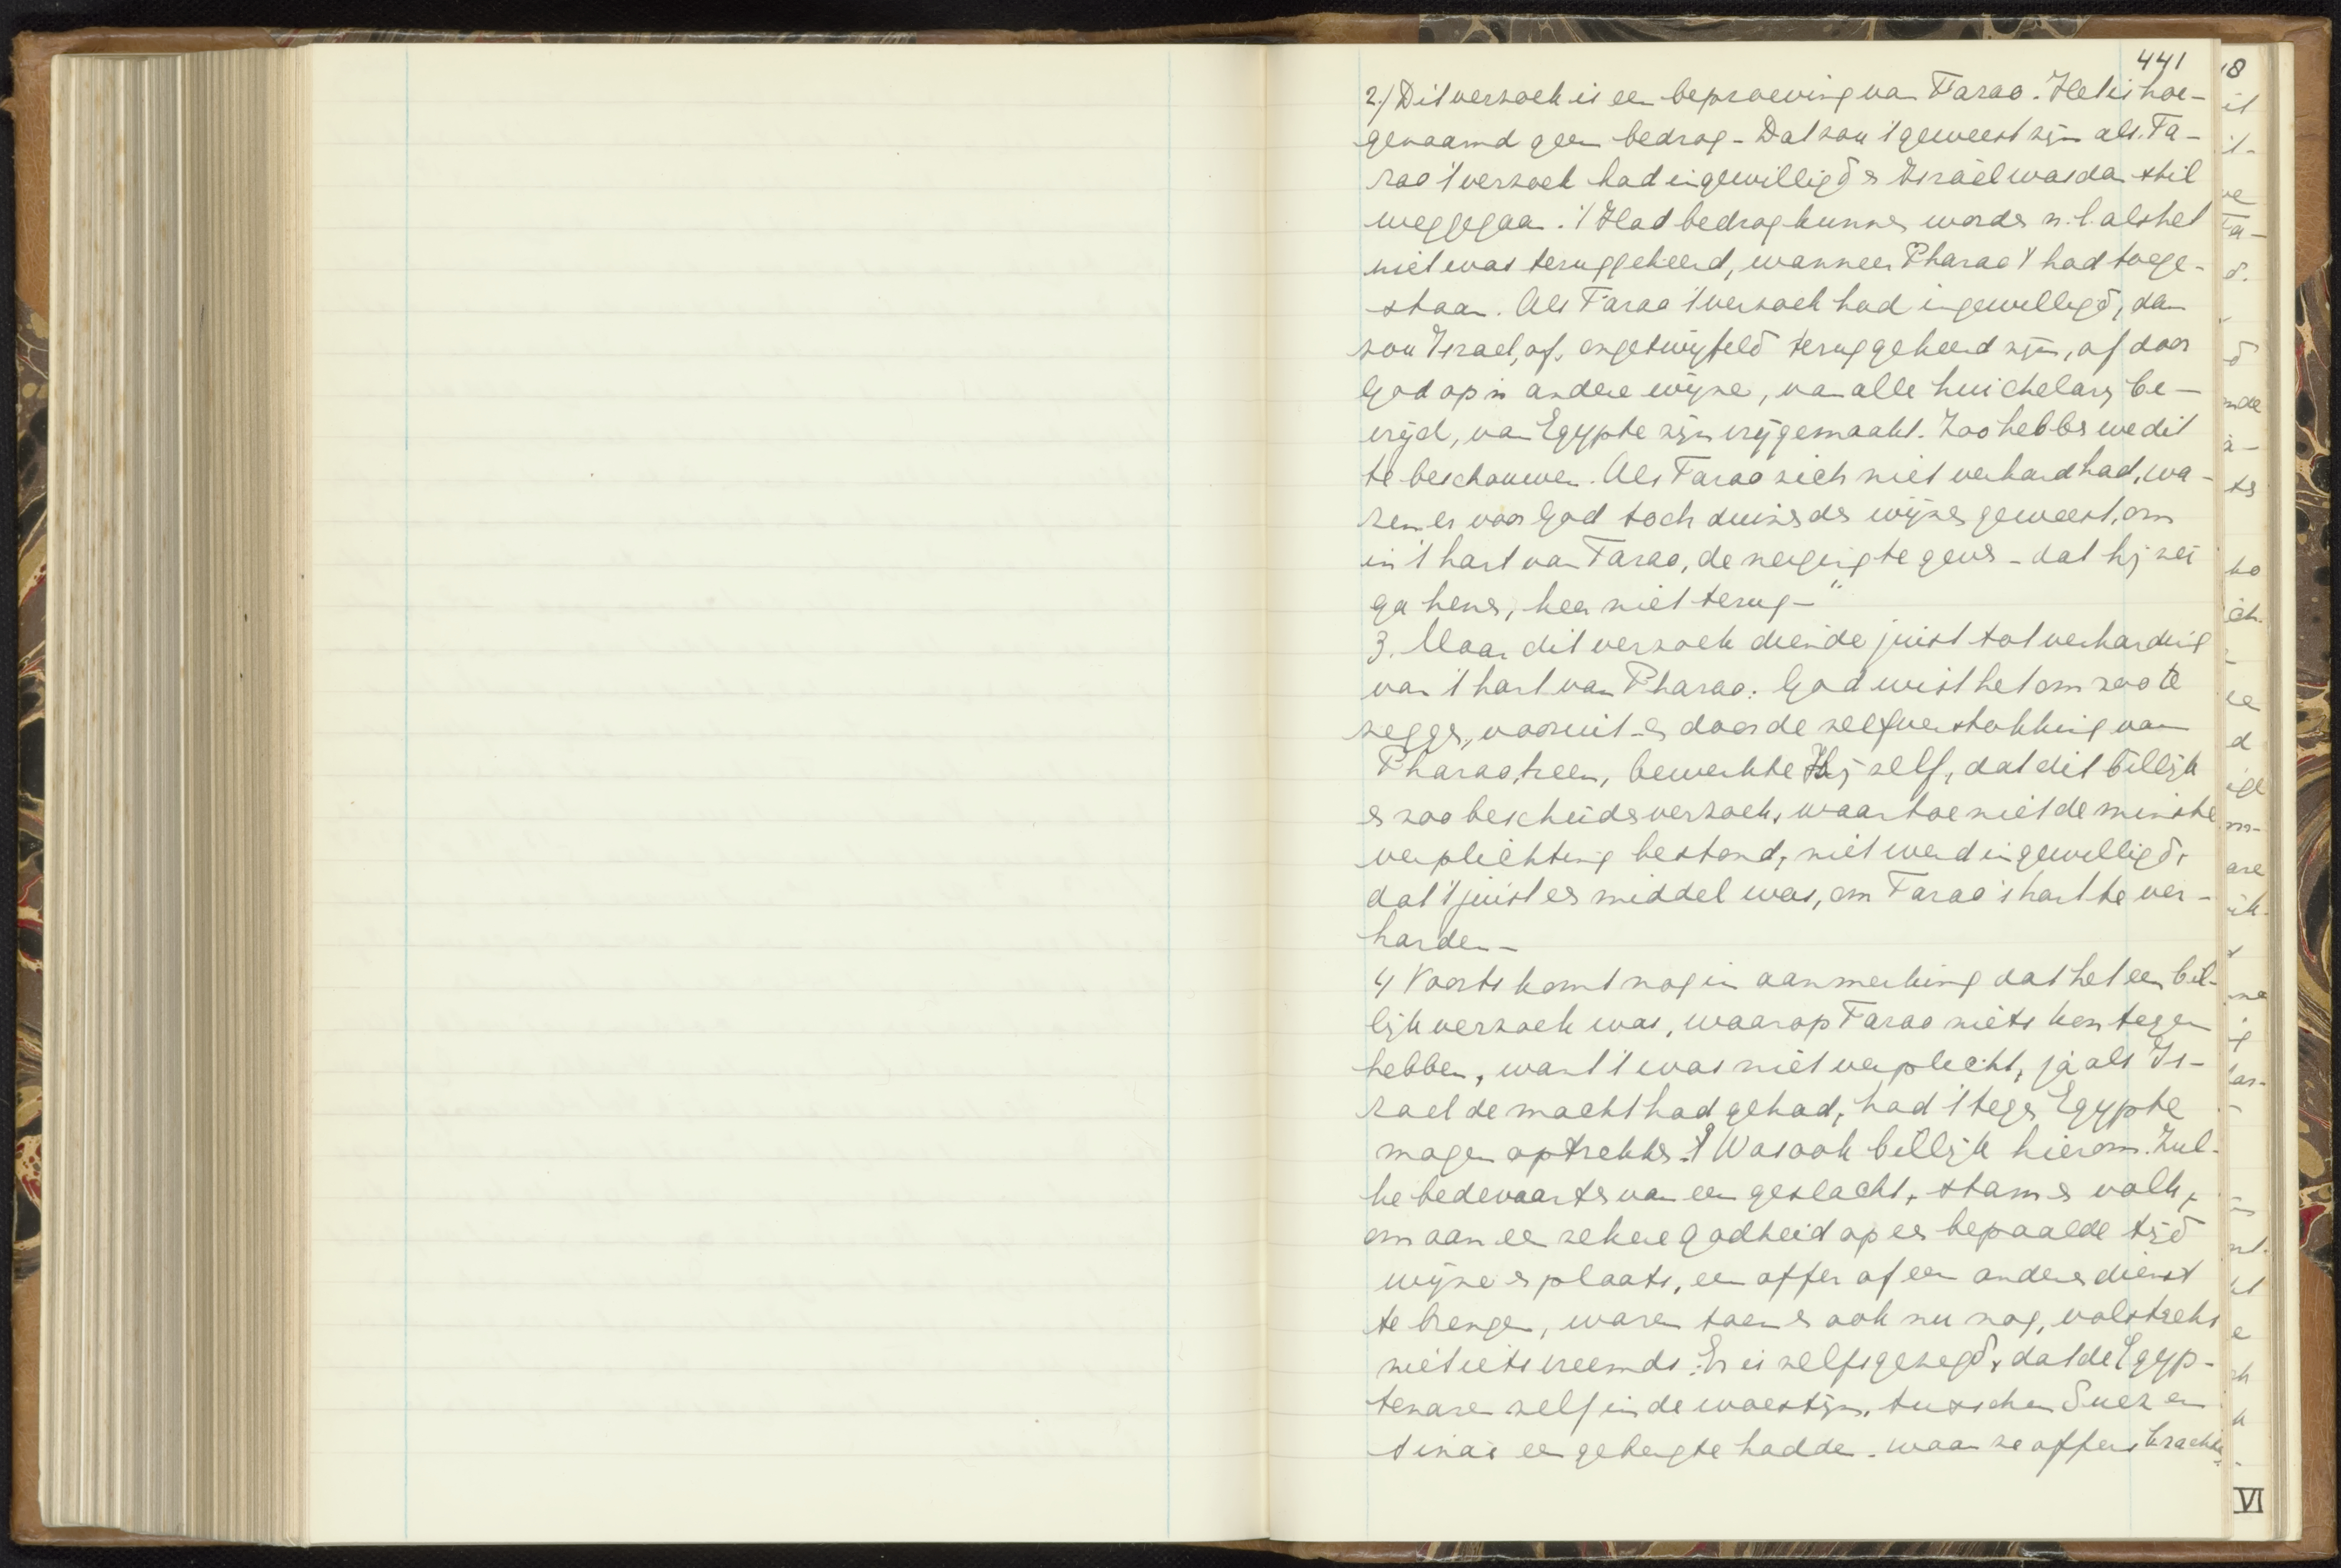 441
2.) Dit verzoek is een beproeving van Farao. Het is hoe-
genaamd geen bedrog - Dat zou 't geweest zijn als Fa-
rao 't verzoek had ingewilligd en Israël was dan stil
weggegaan. 't Had bedrog kunnen worden n.l. als het
niet was teruggekeerd, wanneer Pharao 't had toege-
staan. Als Farao 't verzoek had ingewilligd, dan
zou Israel, of, ongetwijfeld teruggekeerd zijn, of door
God op 'n andere wijze, van alle huichelarij be-
vrijd, van Egypte zijn vrijgemaakt. Zoo hebben we dit
te beschouwen. Als Farao zich niet verhard had, wa-
ren er voor God toch duizenden wijzen geweest, om
in 't hart van Farao, de neiging te geven - dat hij zei
ga henen, keer niet terug - "
3. Maar dit verzoek diende juist tot verharding
van 't hart van Pharao: God wist het om zoo te
zeggen, vooruit - en door de zelfverstokking van
Pharao, heen, bewerkte Hij zelf, dat dit billijk
en zoo bescheiden verzoek, waartoe niet de minste
verplichting bestond, niet werd ingewilligd,
dat 't juist een middel was, om Farao's hart te ver-
harden -
4) Voorts komt nog in aanmerking dat het een bil-
lijk verzoek was, waarop Farao niets kon tegen
hebben, want 't was niet verplicht, ja als Is-
rael de macht had gehad, had 't tegen Egypte
mogen optrekken. 't Was ook billijk hierom. Zul-
ke bedevaarten van een geslacht, stam en volk,
om aan een zekere godheid op een bepaalde tijd
wijze en plaats, een offer of een andere dienst
te brengen, waren toen en ook nu nog, volstrekt
niet iets vreemds. Er is zelfs gezegd, dat de Egyp-
tenaren zelf in de woestijn, tusschen Suez en
Sinaï een gebergte hadden. waar ze offers brachten.
VI